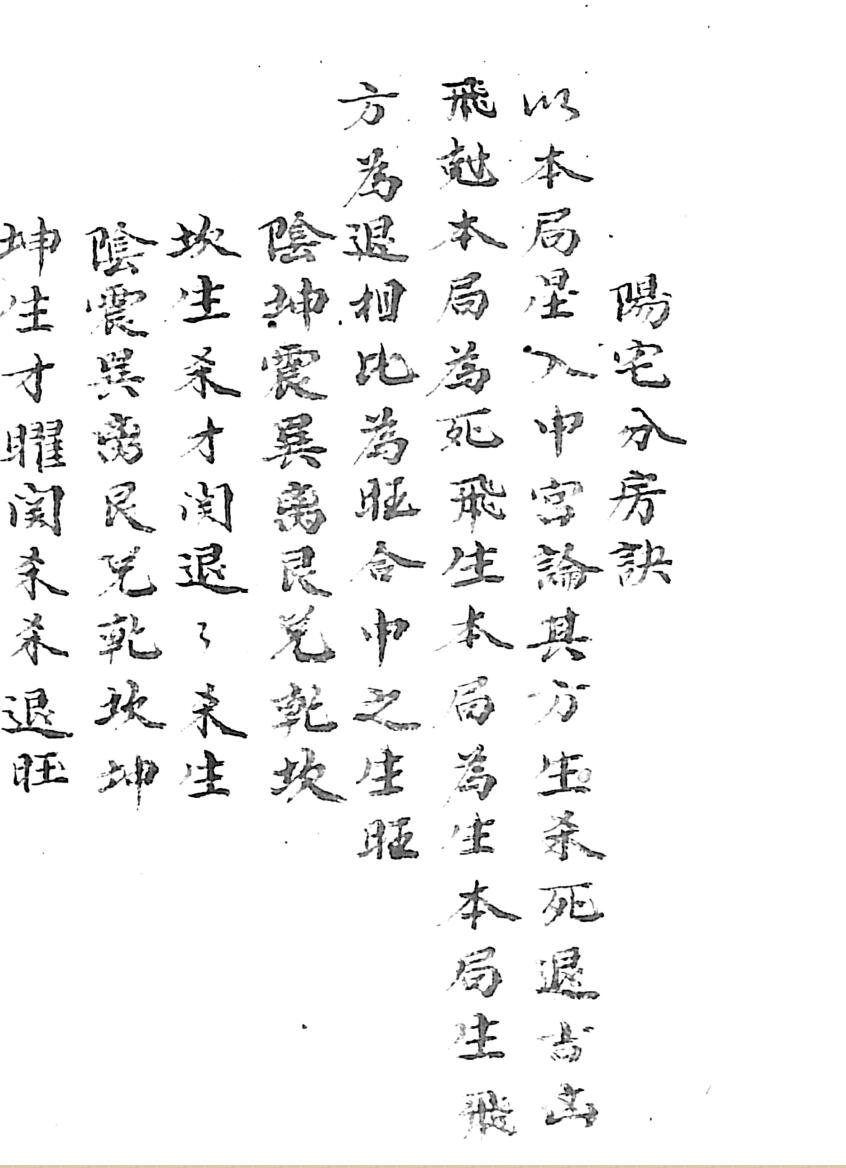 陽宅分房訣
以本局星入中宮論其方生杀死退吉凶
飛尅本局為死飛生本局為生本局生飛
方為退相比為旺合中之生旺
陰坤震巽离艮兑乾坎
坎生杀才関退〻杀生
陰震巽离艮兑乾坎坤
坤生才曜関杀杀退旺